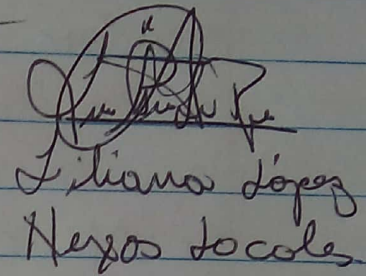 Liliana López
Nexos Locales